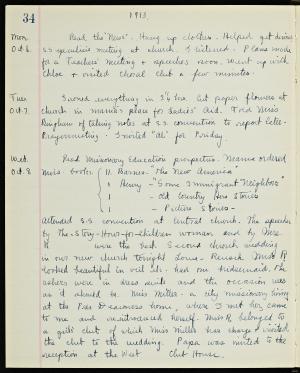 34
1913
Mon
Oct 6.
Read the "News". Hung up clothes. Helped get dinner
S.S. executive meeting at church. I listened. P. came made
for a Teachers' Meeting + speeches room. Went up with
Chloe + visited choral club a few minutes.
Tues
Oct 7.
everything in
cut paper flowers at
church in place for Ladies' Aid. Told Miss
Bingham of taking notes at S.S. convention to report later.
Prayermeeting. I invited "Ab" for Friday
Wed.
Oct. 8.
Read Missionary Education prospectus. Mamma ordered
Miss
Barnes - The New America
Henry - "Some Immigrant Neighbors"
- Old Country Hero Stories
- Picture Stories -
Attended S.S. convention at Central Church. The speeches
by The-Story-Hour-for-Children woman and by Miss
were the best. Second church wedding
in our new church tonight
Miss R
looked beautiful in veil etc. had one bridesmaid. The
ushers were in dress suits and the occasion was
as it should be. Miss Miller - a city missionary living
at the Pres. Deaconess home, where I met her, came
to me and reintroduced herself. Miss R. belonged to
a girls' club of which Miss Miller has charge + invited
the club to the wedding. Papa was invited to the
reception at the West
Club House.